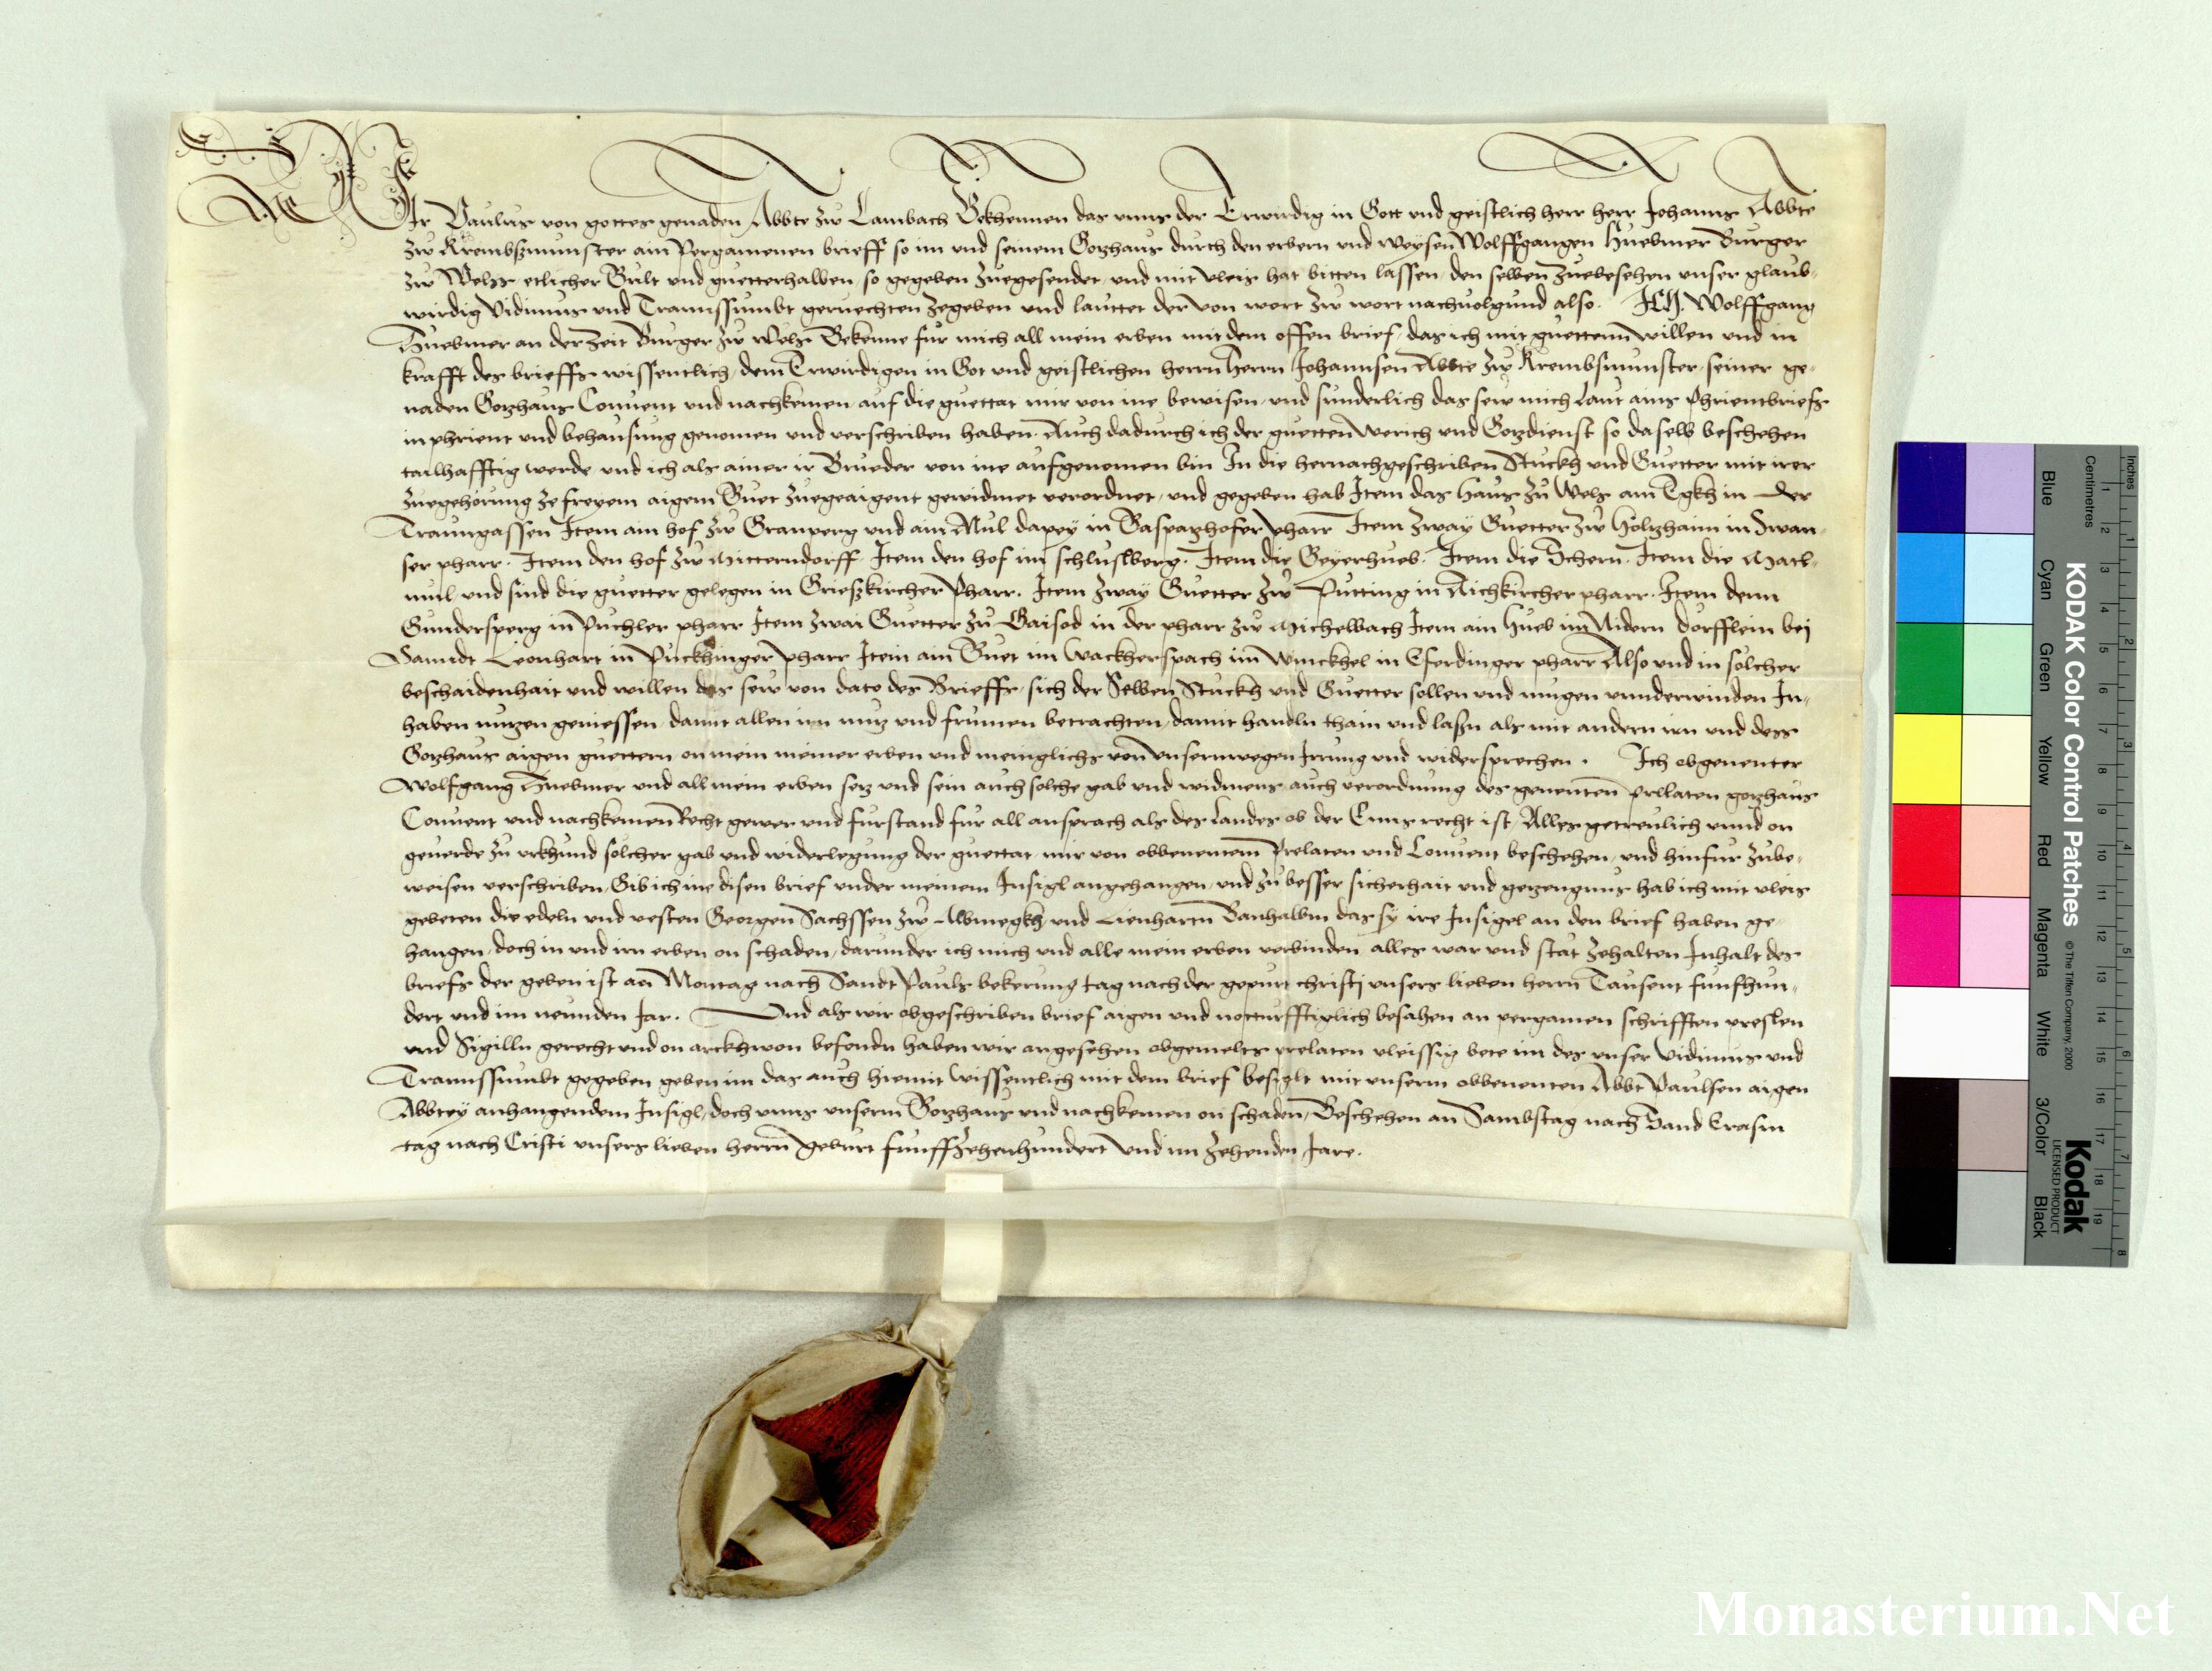 Wir Paulus von gottes genaden Abbte zw Lambach Bekhennen das vnns der Erwirdig in Gott vnd geistlich herr herr Johanns Abbte
zw Krembsmunster ain Pergamenen brieff so im vnd seinem Gotzhaus durch den erbern vnd weysen Wolffgangen Huebmer Burger
zw Wels etlicher Gult vnd guetterhalben so gegeben zuegesendet vnd mit vleis hat bitten lassen den selben zuebesehen vnser glaub-
wirdig Vidimus vnd Trannssumbt geruechten zegeben vnd lauttet der von wort zw wort nachuolgund also. ICH Wolffgang
Huebmer an der Zeit Burger zw Wels Bekenne fur mich all mein erben mit dem offen brief das ich mit guettem willen vnd in
krafft des brieffs wissentlich dem Erwirdigen in Got vnd geistlichen herrn herrn Johannsen Abbte zw Krembsmunster seiner ge-
naden Gotzhaus Conuent vnd nachkemen auf die guettat mir von ine bewisen vnd sunderlich das sew mich laut ains phrientbriefs
in phrient vnd behausung genomen vnd verschriben haben. Auch dadurch ich der guetten werich vnd Gotzdienst so daselb beschehen
tailhafftig werde vnd ich als ainer ir Brueder von ine aufgenomen bin In die hernachgeschriben Stuckh vnd Guetter mit irer
zuegehorung ze freyem aigem Guet zuegeaigent gewidmet verordnet vnd gegeben hab Item das haus zu Wels am Egkh in der
Traungassen Item ain hof zw Granperg vnd ain Mul dapey in Gaspoltzhofer pharr Item zway Guetter zw Holtzhaim in Swan-
ser pharr. Item den hof zw Mitterndorff Item den hof im schluslberg. Item die Geyerhueb. Item die Schern. Item die Marl-
mul vnd sind die guetter gelegen in Grieszkircher Pharr. Item zway Guetter zw Putting in Aichkircher pharr. Item denn
Gundersperg in Puchler pharr Item zwai Guetter zu Gaisod in der pharr zw Michelbach Item ain Hueb im Nidern dorfflein bei
Sanndt Leonhart in Puckhinger pharr Item ain Guet im Wackherspach im Winckhel in Eferdinger pharr Also vnd in solcher
beschaidenhait vnd willen das sew von dato des Brieffs sich der Selben Stuckh vnd Guetter sollen vnd mugen vnnderwinden In-
haben nutzen geniessen damit allen irn nutz vnd frumen betrachten damit handln thain vnd lasn als mit andern irn vnd dess
Gotzhaus aigen guettern on mein meiner erben vnd meniglichs von vnsernwegen Irrung vnd widersprechen. Ich obgenenter
Wolfgang Huebmer vnd all mein erben setz vnd sein auch solche gab vnd widmens auch verordnung des genenten prelaten gotzhaus
Conuent vnd nachkemen Recht gewer vnd furstand fur all ansprach als des Landes ob der Enns recht ist Alles getreulich vnnd on
geuerde zu vrkhund solcher gab vnd widerlegung der guettat mir von obbenentem Prelaten vnd Conuent beschehen vnd hinfur zube-
weisen verschriben Gib ich ine disen brief vnder meinem Insigl angehangen vnd zu besser sicherhait vnd getzeugnus hab ich mit vleis
gebeten die edeln vnd vesten Georgen Sachssen zw Albmegkh vnd Lienhartn Banhalbm das sy ire Insigel an den brief haben ge-
hangen doch in vnd irn erben on schaden darunder ich mich vnd alle mein erben verbinden alles war vnd stat zehalten Inhalt des
briefs der geben ist an Montag nach Sandt Pauls bekerung tag nach der gepurt christi vnsers lieben herrn Tausent funfhun-
dert vnd im neunden Jar. Vnd als wir obgeschriben brief aigen vnd notturfftigclich besahen an pergamen schrifften preslen
vnd Sigilln gerecht vnd on arckhwon befonden haben wir angesehen obgemelts prelaten vleissig bete im des vnser Vidimus vnd
Trannssumbt gegeben geben im das auch hiemit wissentlich mit dem brief besiglt mit vnserm obbenenten Abbt Paulsen aigen
Abbtey anhangendem Insigl doch vnns vnserm Gotzhaus vnd nachkemen on schaden Beschehen an Sambstag nach Sand Erasm
tag nach Cristi vnsers lieben herrn geburt funffzehenhundert vnd im zehenden Jare.
KODAK Color Control Patches © The Tiffen Company, 2000
Kodak
LICENSED PRODUCT
Inches
Centimetres
1 2 3 4 5 6 7 8
1 2 3 4 5 6 7 8 9 10 11 12 13 14 15 16 17 18 19
Blue Cyan Green Yellow Red Magenta White 3/Color Black
Monasterium.Net